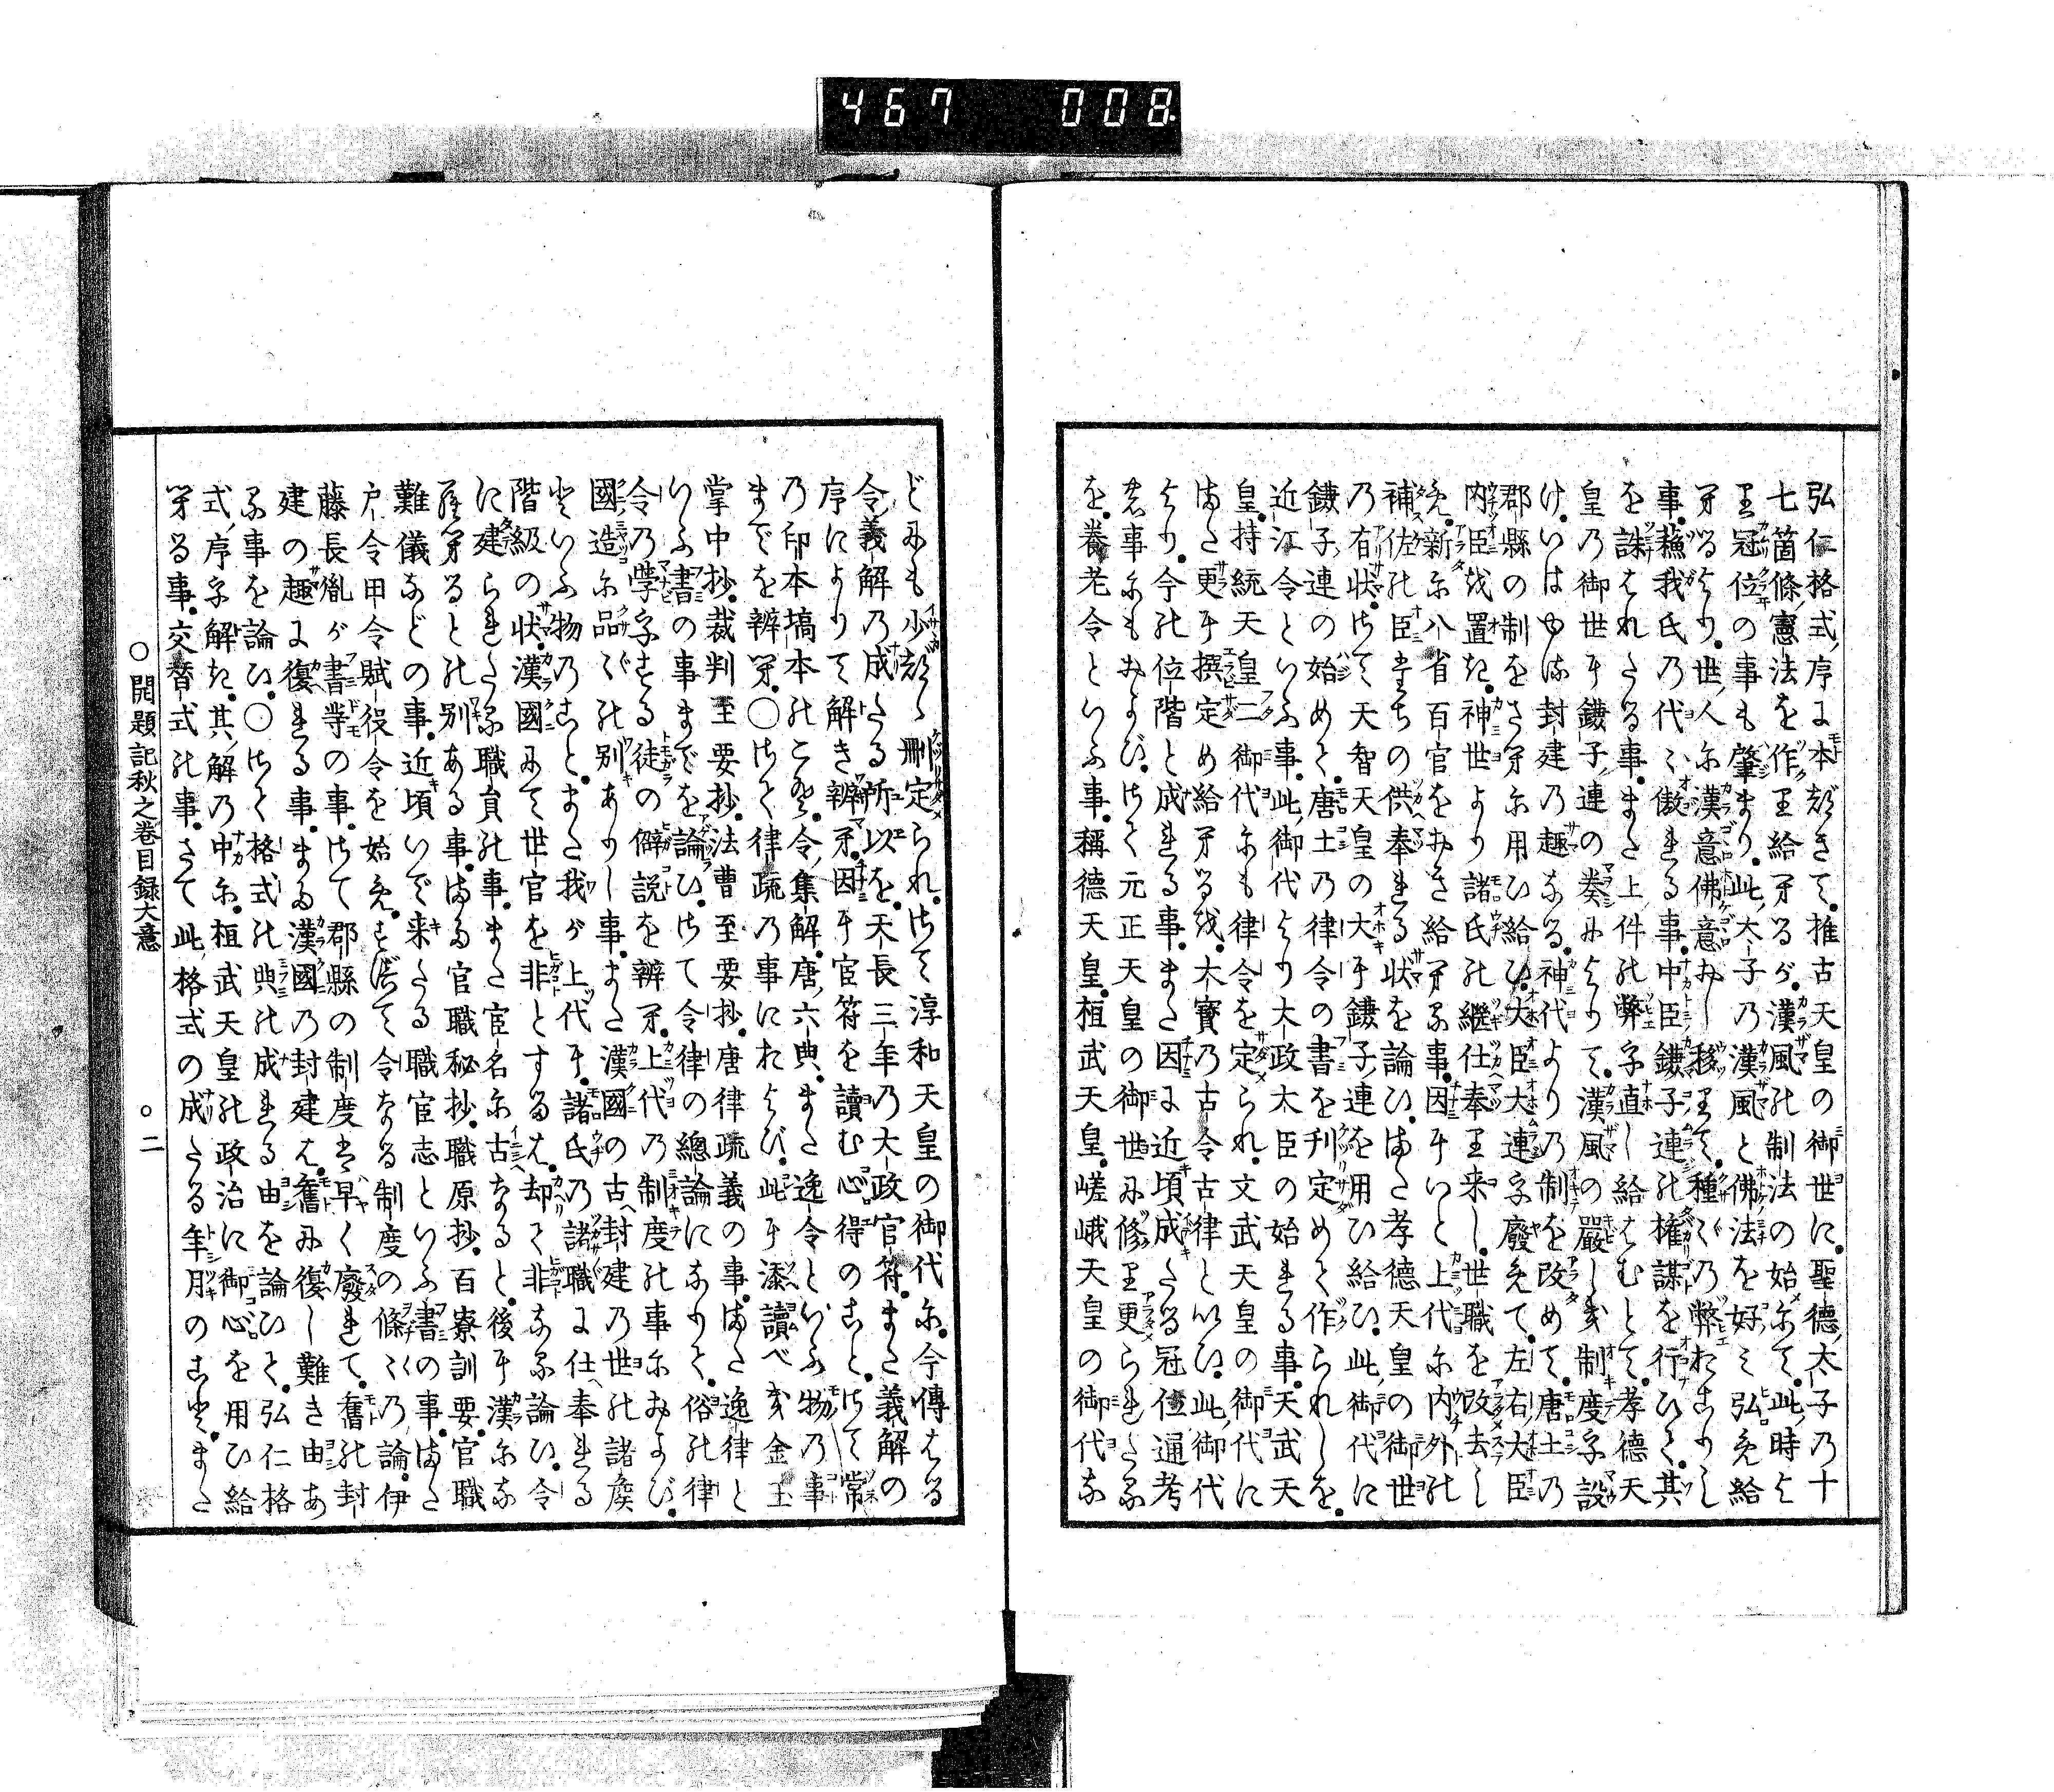 467 008
弘仁格式ノ序に本づきて。推古天皇の御世に。聖徳ノ太子乃十
七箇條ノ憲法を作り給へるが。漢風の制法の始めにて。此ノ時より
冠位の事も肇まり。此ノ太子乃漢風と佛法を好みて弘め給
へるより。世ノ人に漢意佛意おし移りて。種々乃弊おこりし
事。蘇我氏乃代々傲れる事。中臣ノ鎌子ノ連の權謀を行ひて。其
を誅はれたる事。また上ノ件の弊を直し給はむとて。孝徳天
皇乃御世に鎌子ノ連の奏によりて。漢風の嚴しき制度を設
け。いはゆる封建乃趣なる。神代より乃制を改めて。唐土乃
郡縣の制をさへに用ひ給ひ。大臣大連を廢めて。左右大臣
内臣を置き。神世より諸氏の繼仕奉り来し。世職を改去し
め。新に八省百官をおき給へる事。因にいと上代に内外の
補佐の臣たちの供奉れる状を論ひ。また孝徳天皇の御世
乃有状。さて天智天皇の大に鎌子ノ連を用ひ給ひ。此ノ御代に
鎌子ノ連の始めて。唐土乃律令の書を刊定めて作られしを。
近江令といふ事。此ノ御代より大政大臣の始れる事。天武天
皇。持統天皇二御代にも律令を定られ。文武天皇の御代に
また更に撰定め給へるを。大寶乃古令古律といひ。此ノ御代
より。今の位階と成れる事。また因に近頃成たる冠位通考
の事にもおよび。さて元正天皇の御世に修り更られたる
を。養老令といふ事。稱徳天皇。桓武天皇。嵯峨天皇の御代な
どにも少か刪定られ。さて淳和天皇の御代に。今傳はる
令ノ義解乃成たる所以を。天長三年乃大政官符。また義解の
序によりて解き辨へ。因に官符を讀む心得のこと。さて常
乃印本塙本のこと。令ノ集解。唐ノ六典。また逸令といふ物乃事
までを辨へ。○さて律疏乃事におよび。此に添讀べき金玉
掌中抄。裁判至要抄。法曹至要抄。唐律疏義の事。また逸律と
いふ書の事までを論ひ。さて令律の總論になりて。俗の律
令乃學をする徒の僻説を辨へ。上代乃制度の事におよび。
國ノ造に品々の別ありし事。また漢國の古ヘ封建乃世の諸侯
といふ物乃こと。また我が上代に。諸氏乃諸職に仕奉れる
階級の状。漢國にて世官を非とするは。却て非なる論ひ。令
に建られたる職員の事。また官名に古なると。後に漢にな
らへるとの別ある事。また官職秘抄。職原抄。百寮訓要。官職
難儀などの事。近頃いで来たる職官志といふ書の事。また
戸令甲令賦役令を始め。すべて令なる制度の條々乃論。伊
藤長胤が書等の事。さて郡縣の制度は早く廢れて。舊の封
建の趣に復れる事。また漢國乃封建は。舊に復し難き由あ
る事を論ひ。○さて格式の典の成れる由を論ひて。弘仁格
式ノ序を解き。其ノ解乃中に。桓武天皇の政治に御心を用ひ給
へる事。交替式の事。さて此ノ格式の成たる年月のこと。また
○開題記秋之巻目録大意
○二